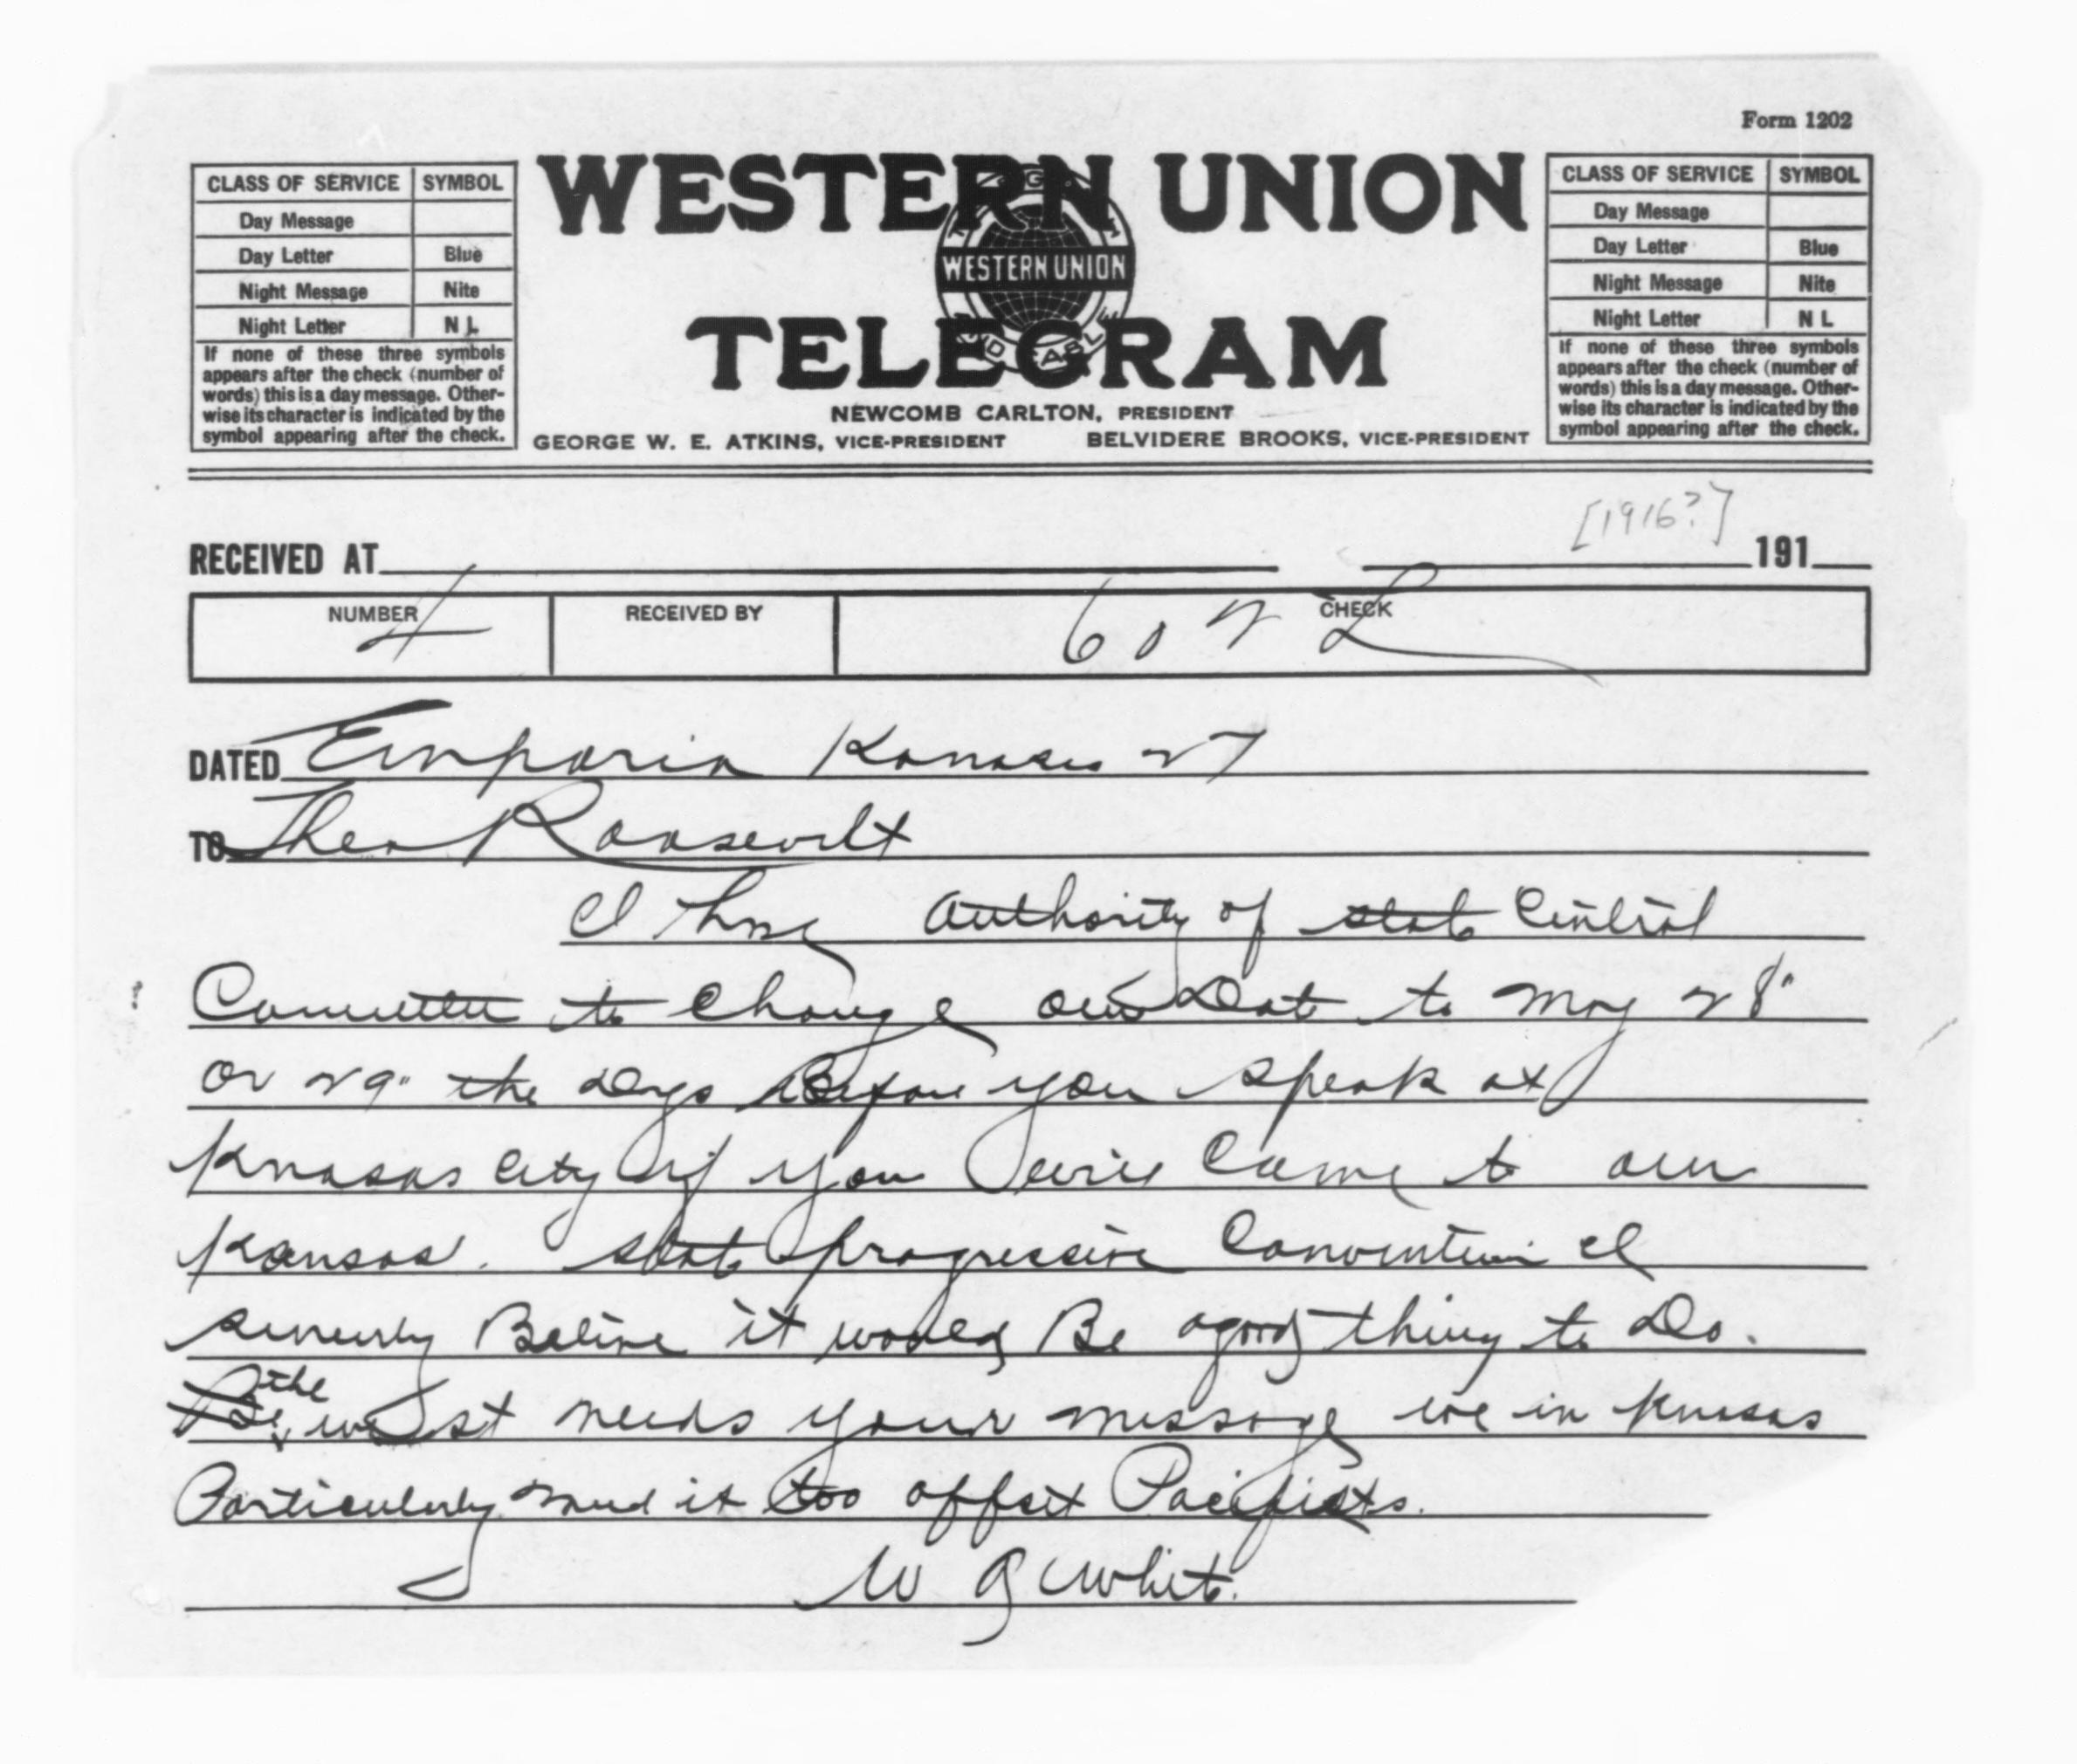 Form 1202
CLASS OF SERVICE SYMBOL
Day Message
Day Letter Blue
Night Message Nite
Night Letter N L
If none of these three symbols
appears after the check (number of
words) this is a day message. Other-
wise its character is indicated by the
symbol appearing after the check.
WESTERN UNION
WESTERN UNION
TELEGRAM
NEWCOMB CARLTON, PRESIDENT
GEORGE W. E. ATKINS, VICE-PRESIDENT BELVIDERE BROOKS, VICE-PRESIDENT
CLASS OF SERVICE SYMBOL
Day Message
Day Letter Blue
Night Message Nite
Night Letter N L
If none of these three symbols
appears after the check (number of
words) this is a day message. Other-
wise its character is indicated by the
symbol appearing after the check.
[1916?]
RECEIVED AT 191
NUMBER RECEIVED BY CHECK
4 60 N L
DATED Emporia Kansas 27
TO Theo Roosevelt
I have authority of state Central
Committee to change our Date to May 28"
or 29" the Days Before you speak at
Kansas City if you will come to our
Kansas. state progressive Convention I
sincerely Believe it would Be a good thing to Do.
the west needs your message we in Kansas
Particularly need it too offset Pacifists.
W A White.